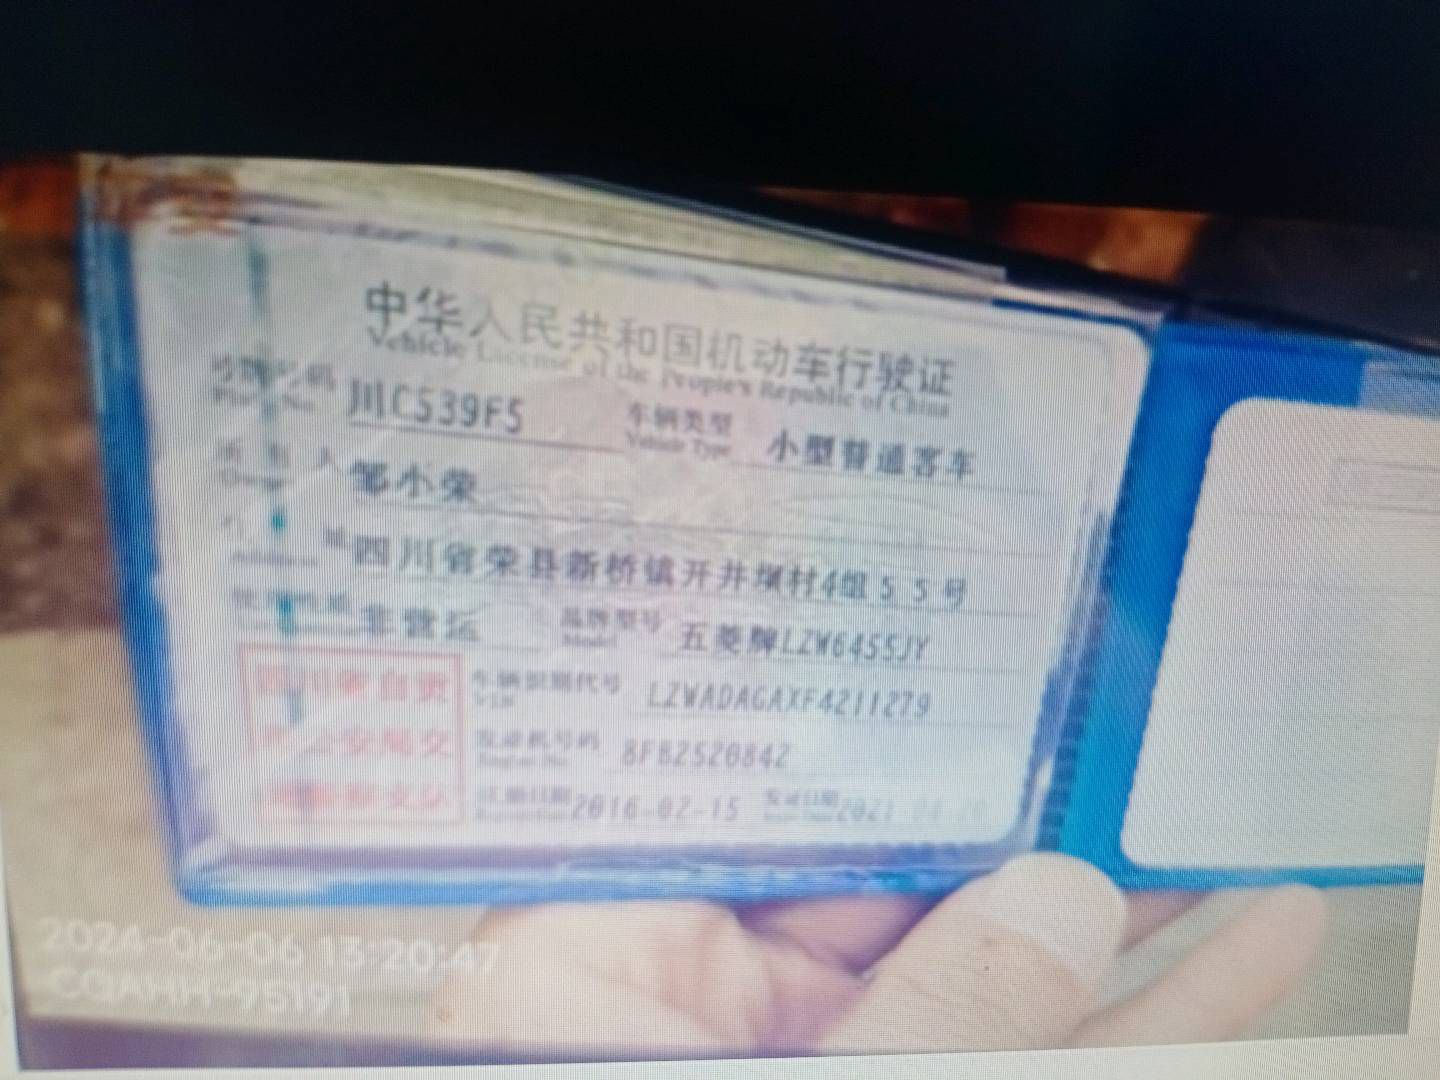 中华人民共和国机动车行驶证
Vehicle License of the People's Republic of China
号牌号码 川C539F5 车辆类型 小型普通客车
Plate No. Vehicle Type
所有人 邹小荣
Owner
四川省荣县新桥镇开井坝村4组55号
使用性质 非营运 品牌型号 五菱牌LZW6455JY
Model
四川省自贡 车辆识别代号 LZWADAGAXF4211279
VIN
市公安局交 发动机号码 8FB2520842
Engine No.
注册日期 2016-02-15 发证日期 2021
2024-06-06 13:20:47